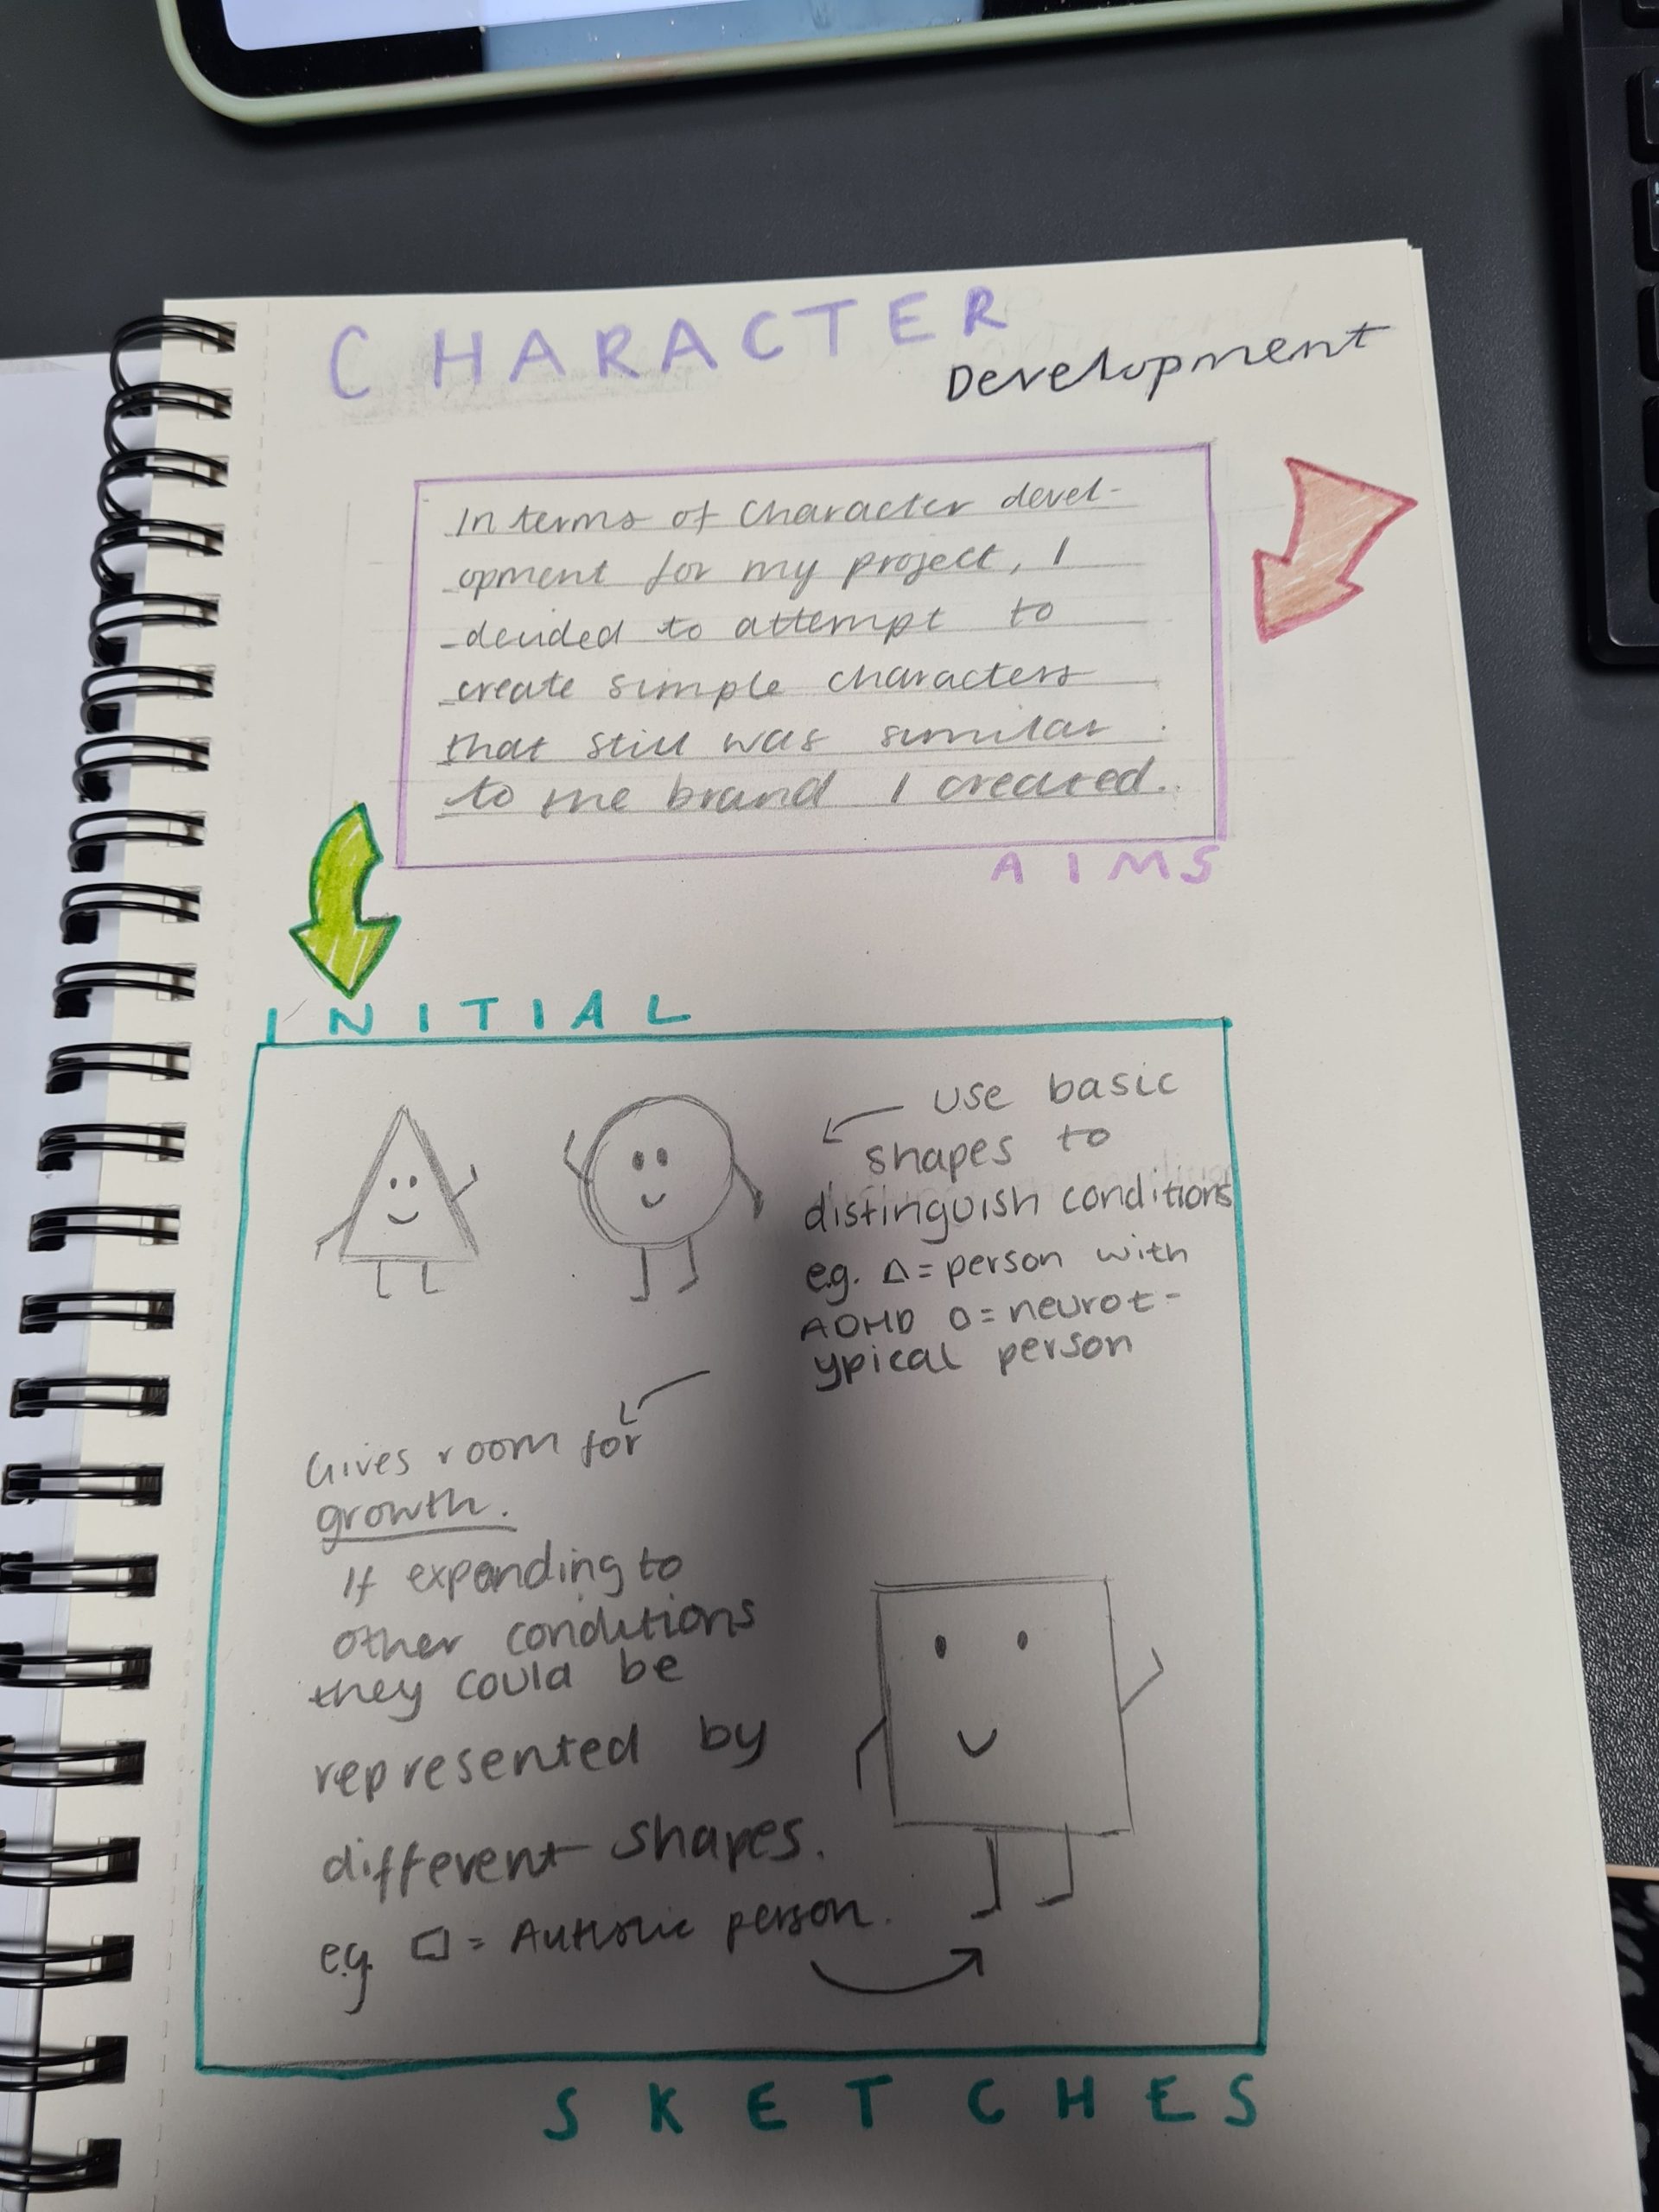 CHARACTER
Development
In terms of Character devel-
opment for my project, I
decided to attempt to
create simple characters
that still was similar
to the brand I created.
AIMS
INITIAL
use basic
shapes to
distinguish conditions
e.g. △ = person with
ADHD O = neurot-
ypical person
Gives room for
growth.
If expanding to
other conditions
they could be
represented by
different shapes.
e.g. □ = Autistic person.
SKETCHES